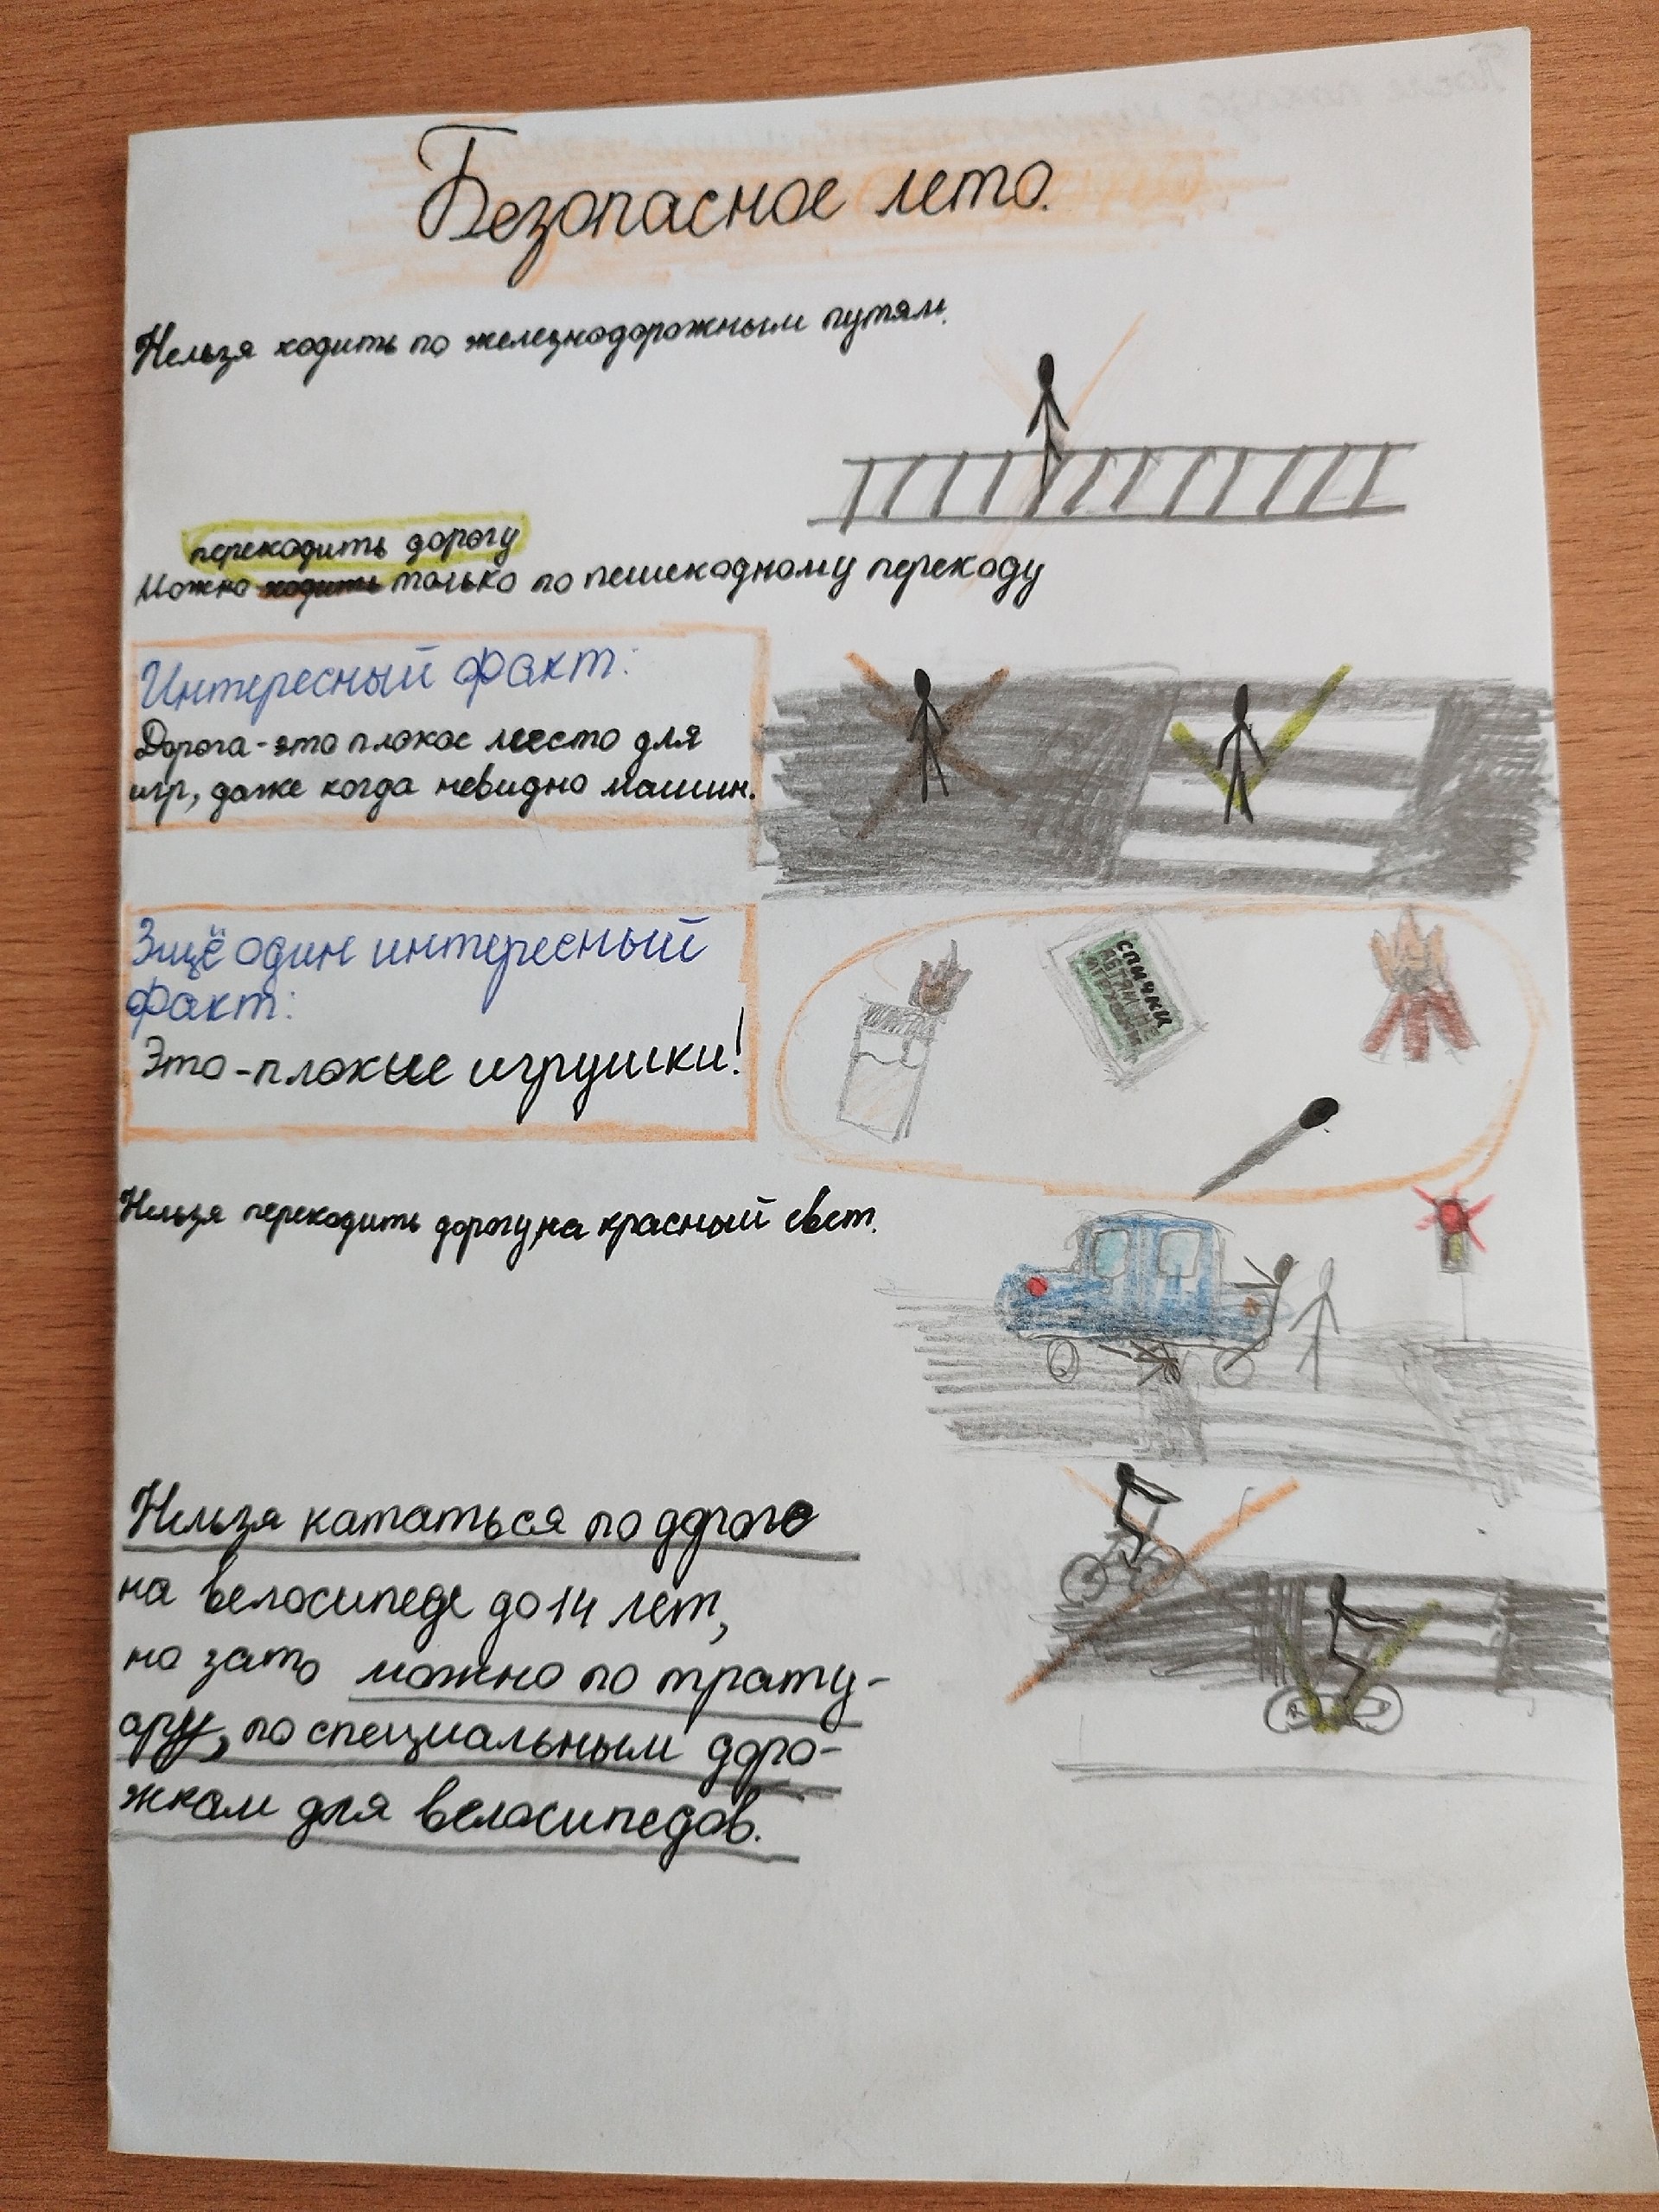 Безопасное лето.
Нельзя ходить по железнодорожным путям.
переходить дорогу
Можно ходить только по пешеходному переходу
Интересный факт:
Дорога - это плохое место для
игр, даже когда невидно машин.
Эщё один интересный
факт:
Это - плохые игрушки!
СПИЧКИ
ДЕТЯМ НЕ
Нельзя переходить дорогу на красный свет.
Нельзя кататься по дороге
на велосипеде до 14 лет,
но зато можно по трату-
ару, по специальным доро-
жкам для велосипедов.